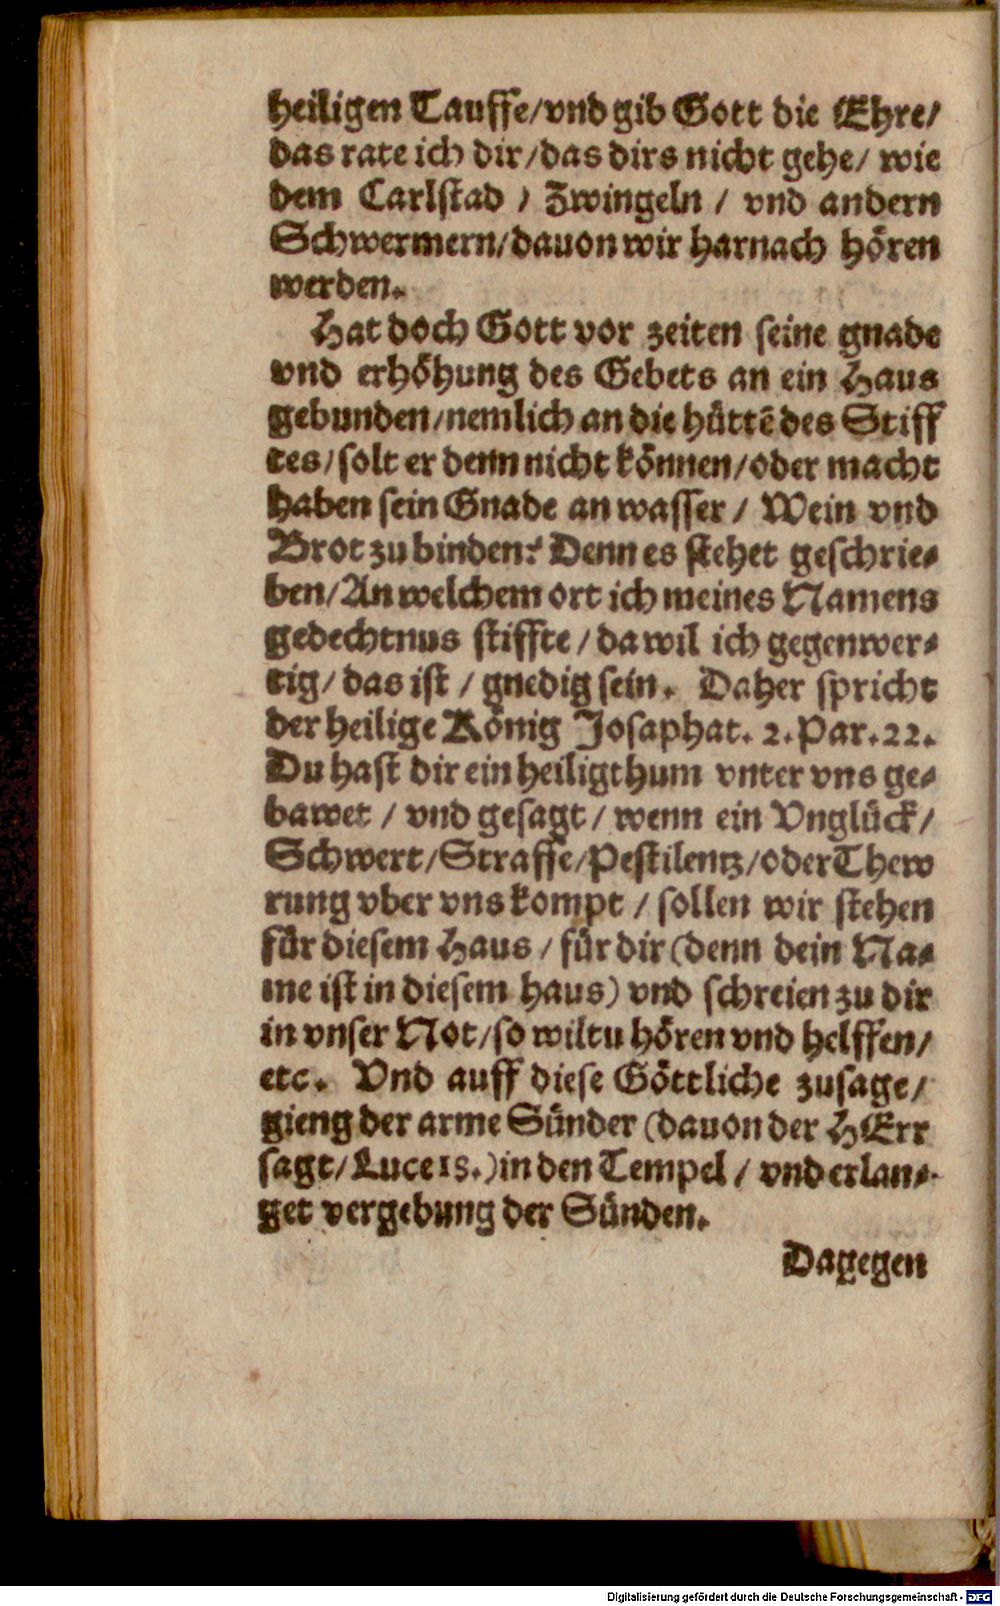 heiligen Tauffe/vnd gib Gott die Ehre/
das rate ich dir/das dirs nicht gehe/ wie
dem Carlstad / Zwingeln / vnd andern
Schwermern/dauon wir harnach hören
werden.
Hat doch Gott vor zeiten seine gnade
vnd erhöhung des Gebets an ein Haus
gebunden/nemlich an die hüttē des Stiff
tes/solt er denn nicht können/oder macht
haben sein Gnade an wasser / Wein vnd
Brot zu binden? Denn es stehet geschrie-
ben/An welchem ort ich meines Namens
gedechtnus stiffte / da wil ich gegenwer-
tig/ das ist / gnedig sein. Daher spricht
der heilige König Josaphat. 2. Par. 22.
Du hast dir ein heiligthum vnter vns ge-
bawet / vnd gesagt / wenn ein Vnglück/
Schwert/Straffe/Pestilentz/oder Thew
rung vber vns kompt / sollen wir stehen
für diesem Haus / für dir (denn dein Na-
me ist in diesem haus) vnd schreien zu dir
in vnser Not/so wiltu hören vnd helffen/
etc. Vnd auff diese Göttliche zusage/
gieng der arme Sünder (dauon der HErr
sagt/Luce 18.) in den Tempel / vnd erlan-
get vergebung der Sünden.
Dagegen
Digitalisierung gefördert durch die Deutsche Forschungsgemeinschaft - DFG